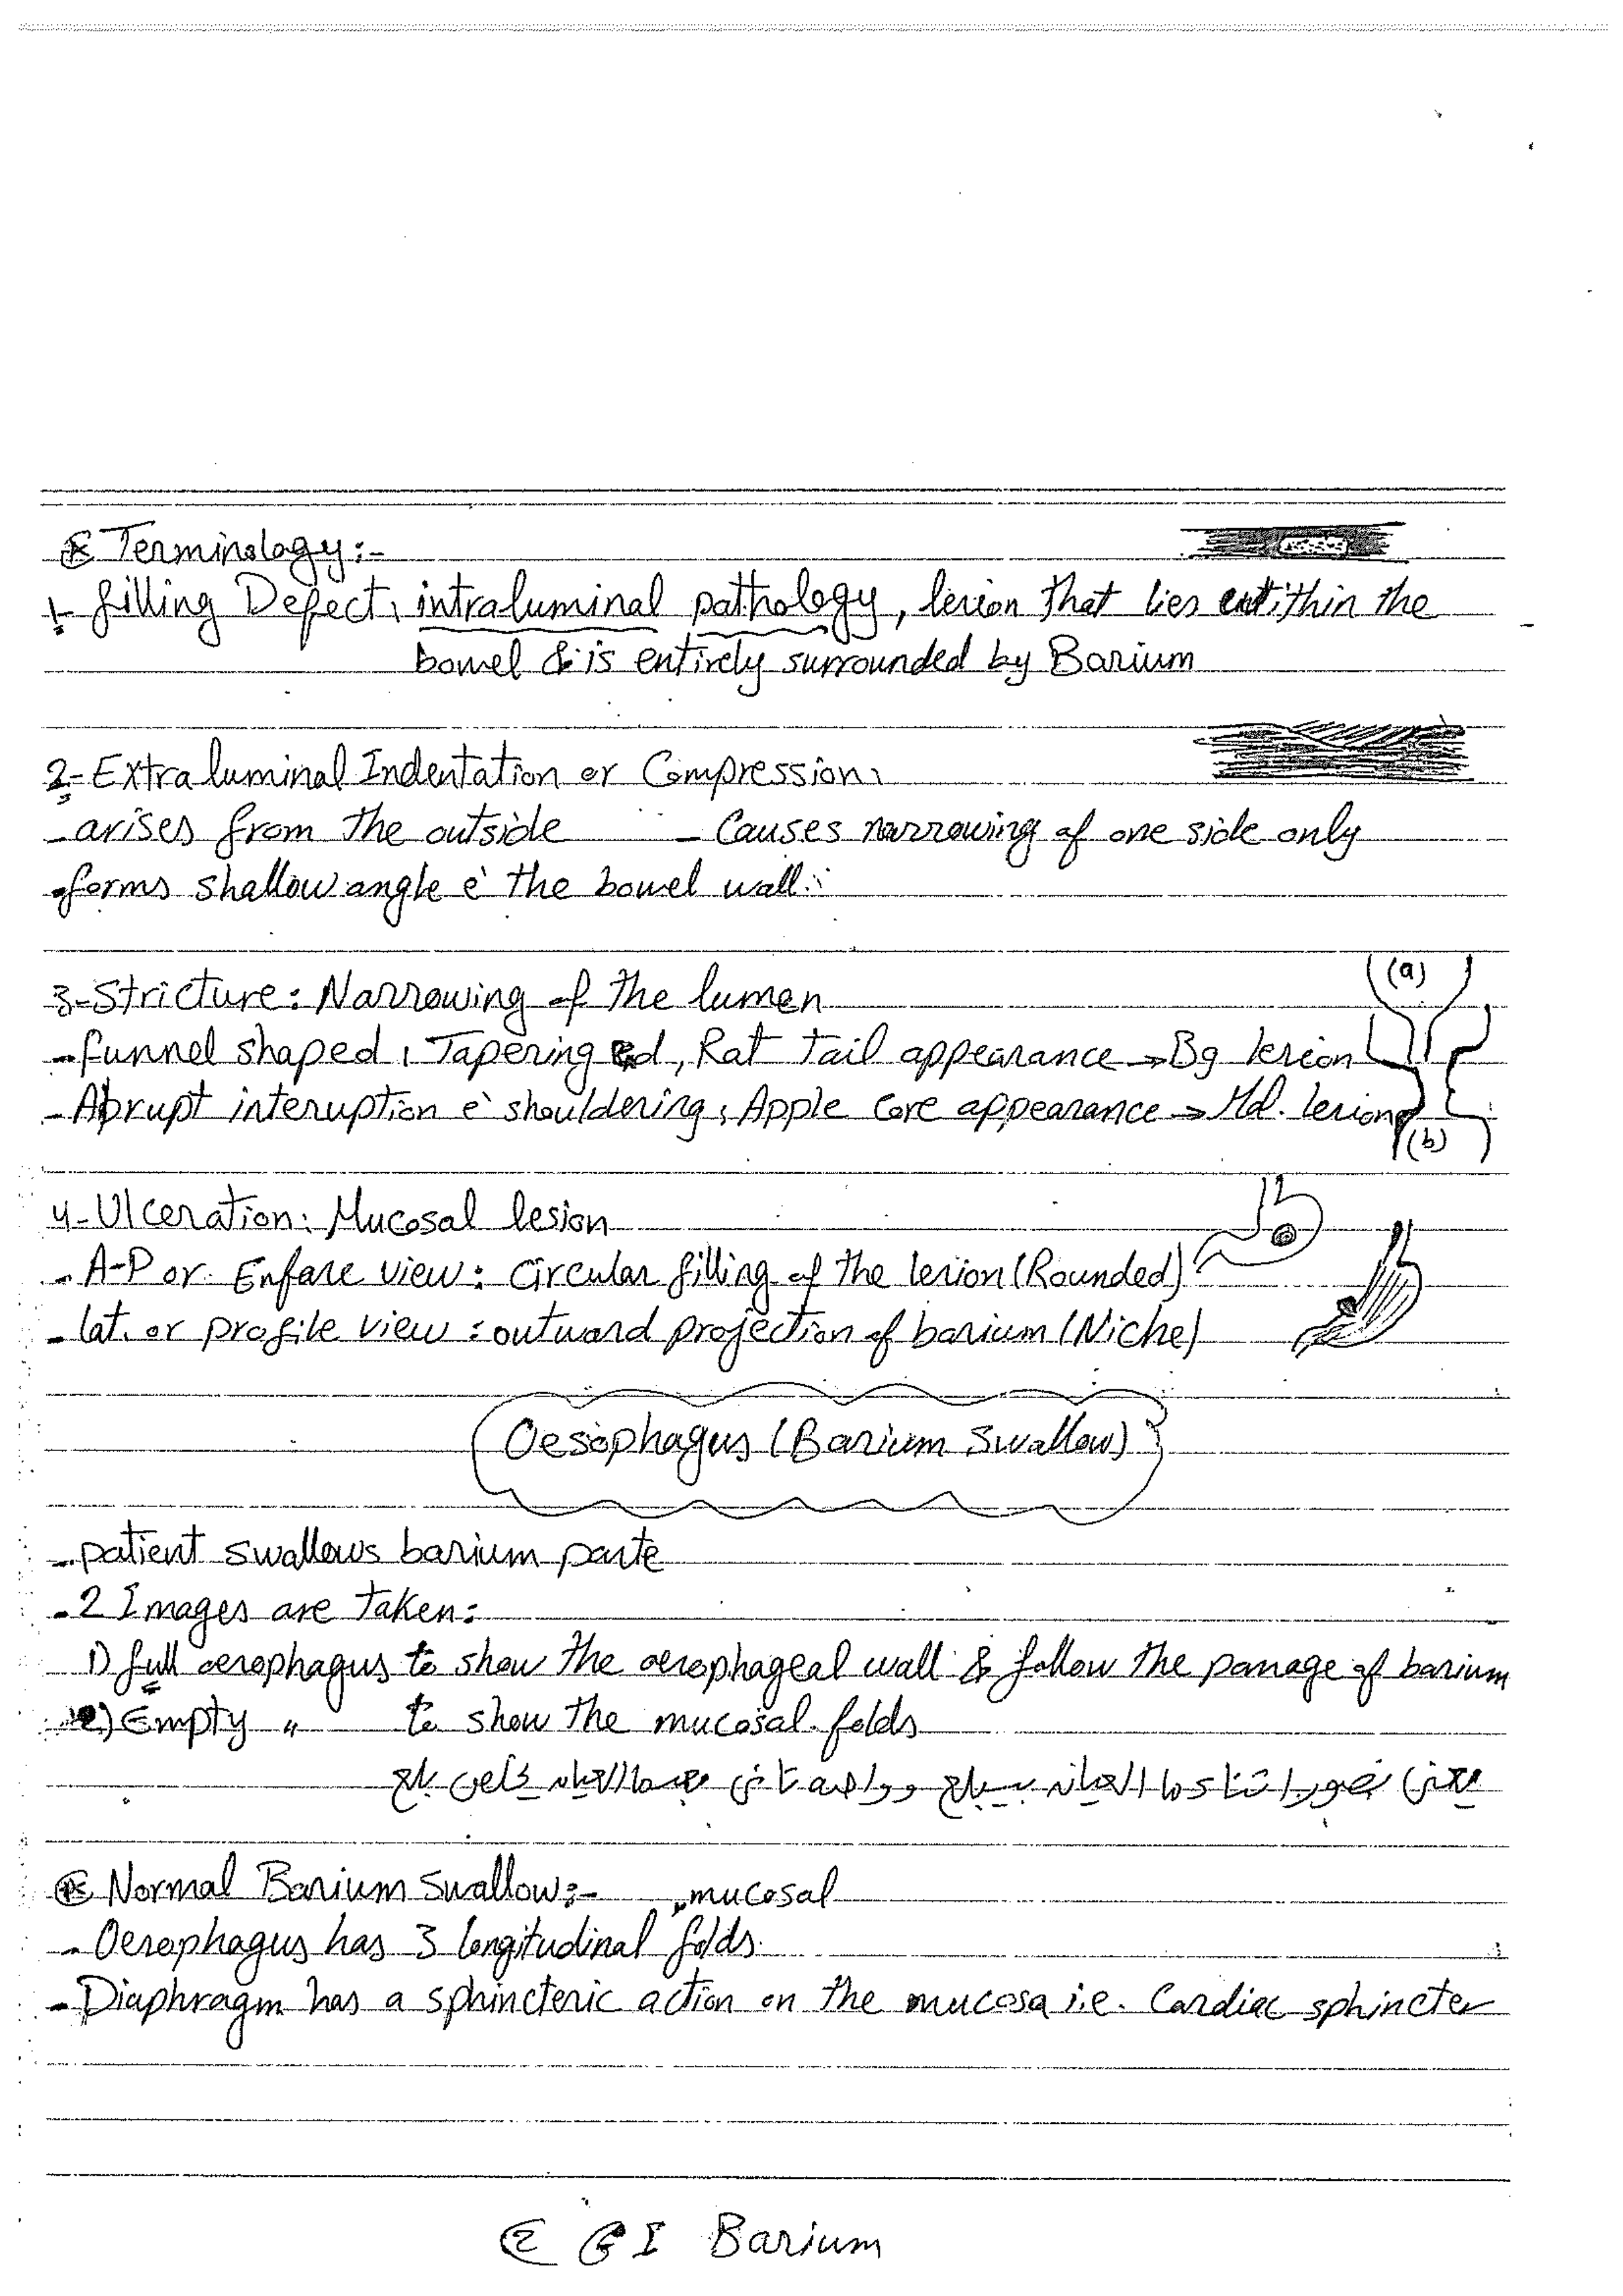 * Terminology:-
1- filling Defect, intraluminal pathology, lesion that lies within the
bowel & is entirely surrounded by Barium
2- Extraluminal Indentation or Compression:
- arises from the outside - Causes narrowing of one side only
- forms shallow angle c̄ the bowel wall.
3- Stricture: Narrowing of the lumen
(a)
- funnel shaped, Tapering end, Rat tail appearance → Bg lesion
- Abrupt interuption c̄ shouldering, Apple Core appearance → Mal. lesion
(b)
4- Ulceration: Mucosal lesion
- A-P or Enface view: Circular filling of the lesion (Rounded)
- lat. or profile view: outward projection of barium (Niche)
Oesophagus (Barium Swallow)
- patient swallows barium paste
- 2 Images are taken:
1) full oesophagus to show the oesophageal wall & follow the passage of barium
2) Empty " to show the mucosal folds
يعني صورة اثناء ما العيان بيبلع وواحدة تاني بعد ما العيان خلص بلع
* Normal Barium Swallow:- mucosal
- Oesophagus has 3 longitudinal folds.
- Diaphragm has a sphincteric action on the mucosa i.e. Cardiac sphincter
2 GI Barium